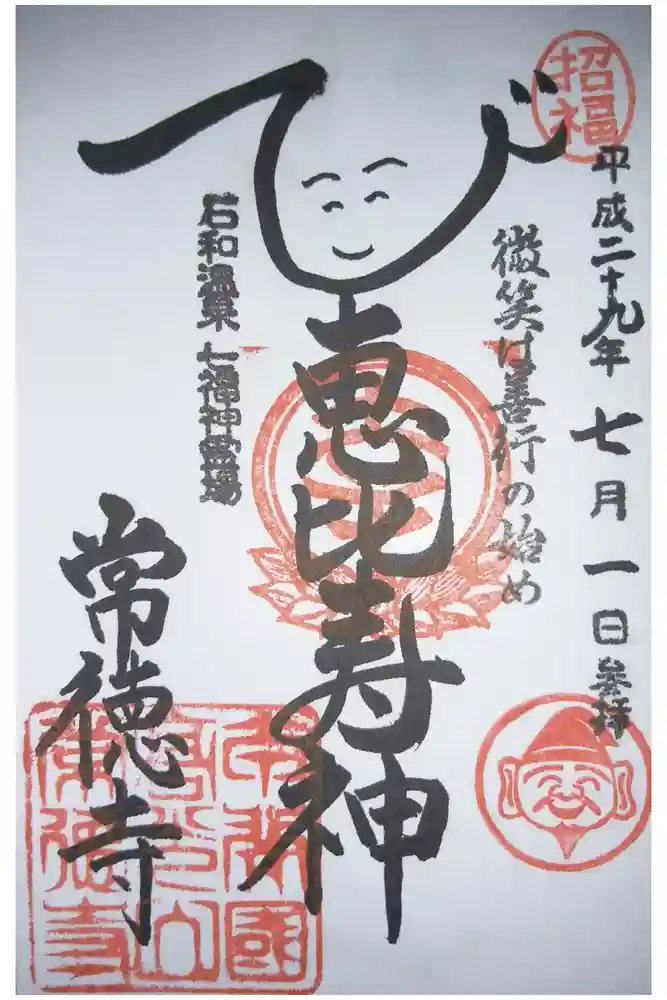 招福
平成二十九年七月一日参拝
微笑は善行の始め
えびす
恵比寿神
石和温泉 七福神霊場
常徳寺
甲斐國
常徳寺